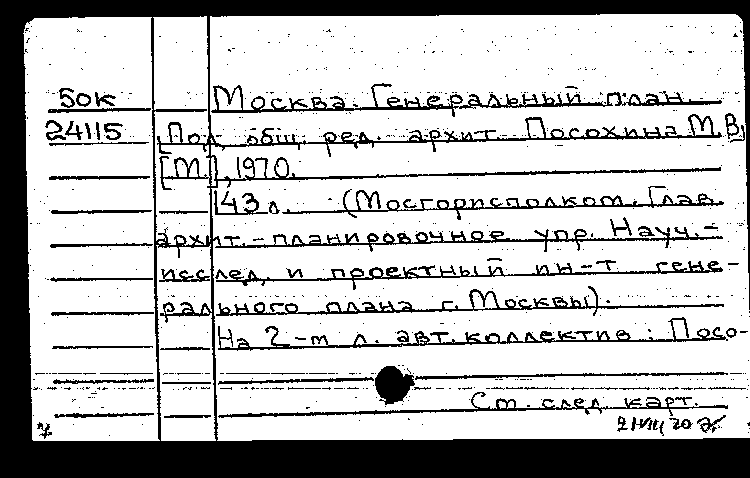 50к Москва. Генеральный план.
24115 [Под общ. ред. архит. Посохина М.В.]
[М.], 1970.
143 л. (Мосгорисполком. Глав.
архит.-планировочное упр. Науч.-
исслед. и проектный ин-т гене-
рального плана г. Москвы).
На 2-м л. авт. коллектив: Посо-
См. след. карт.